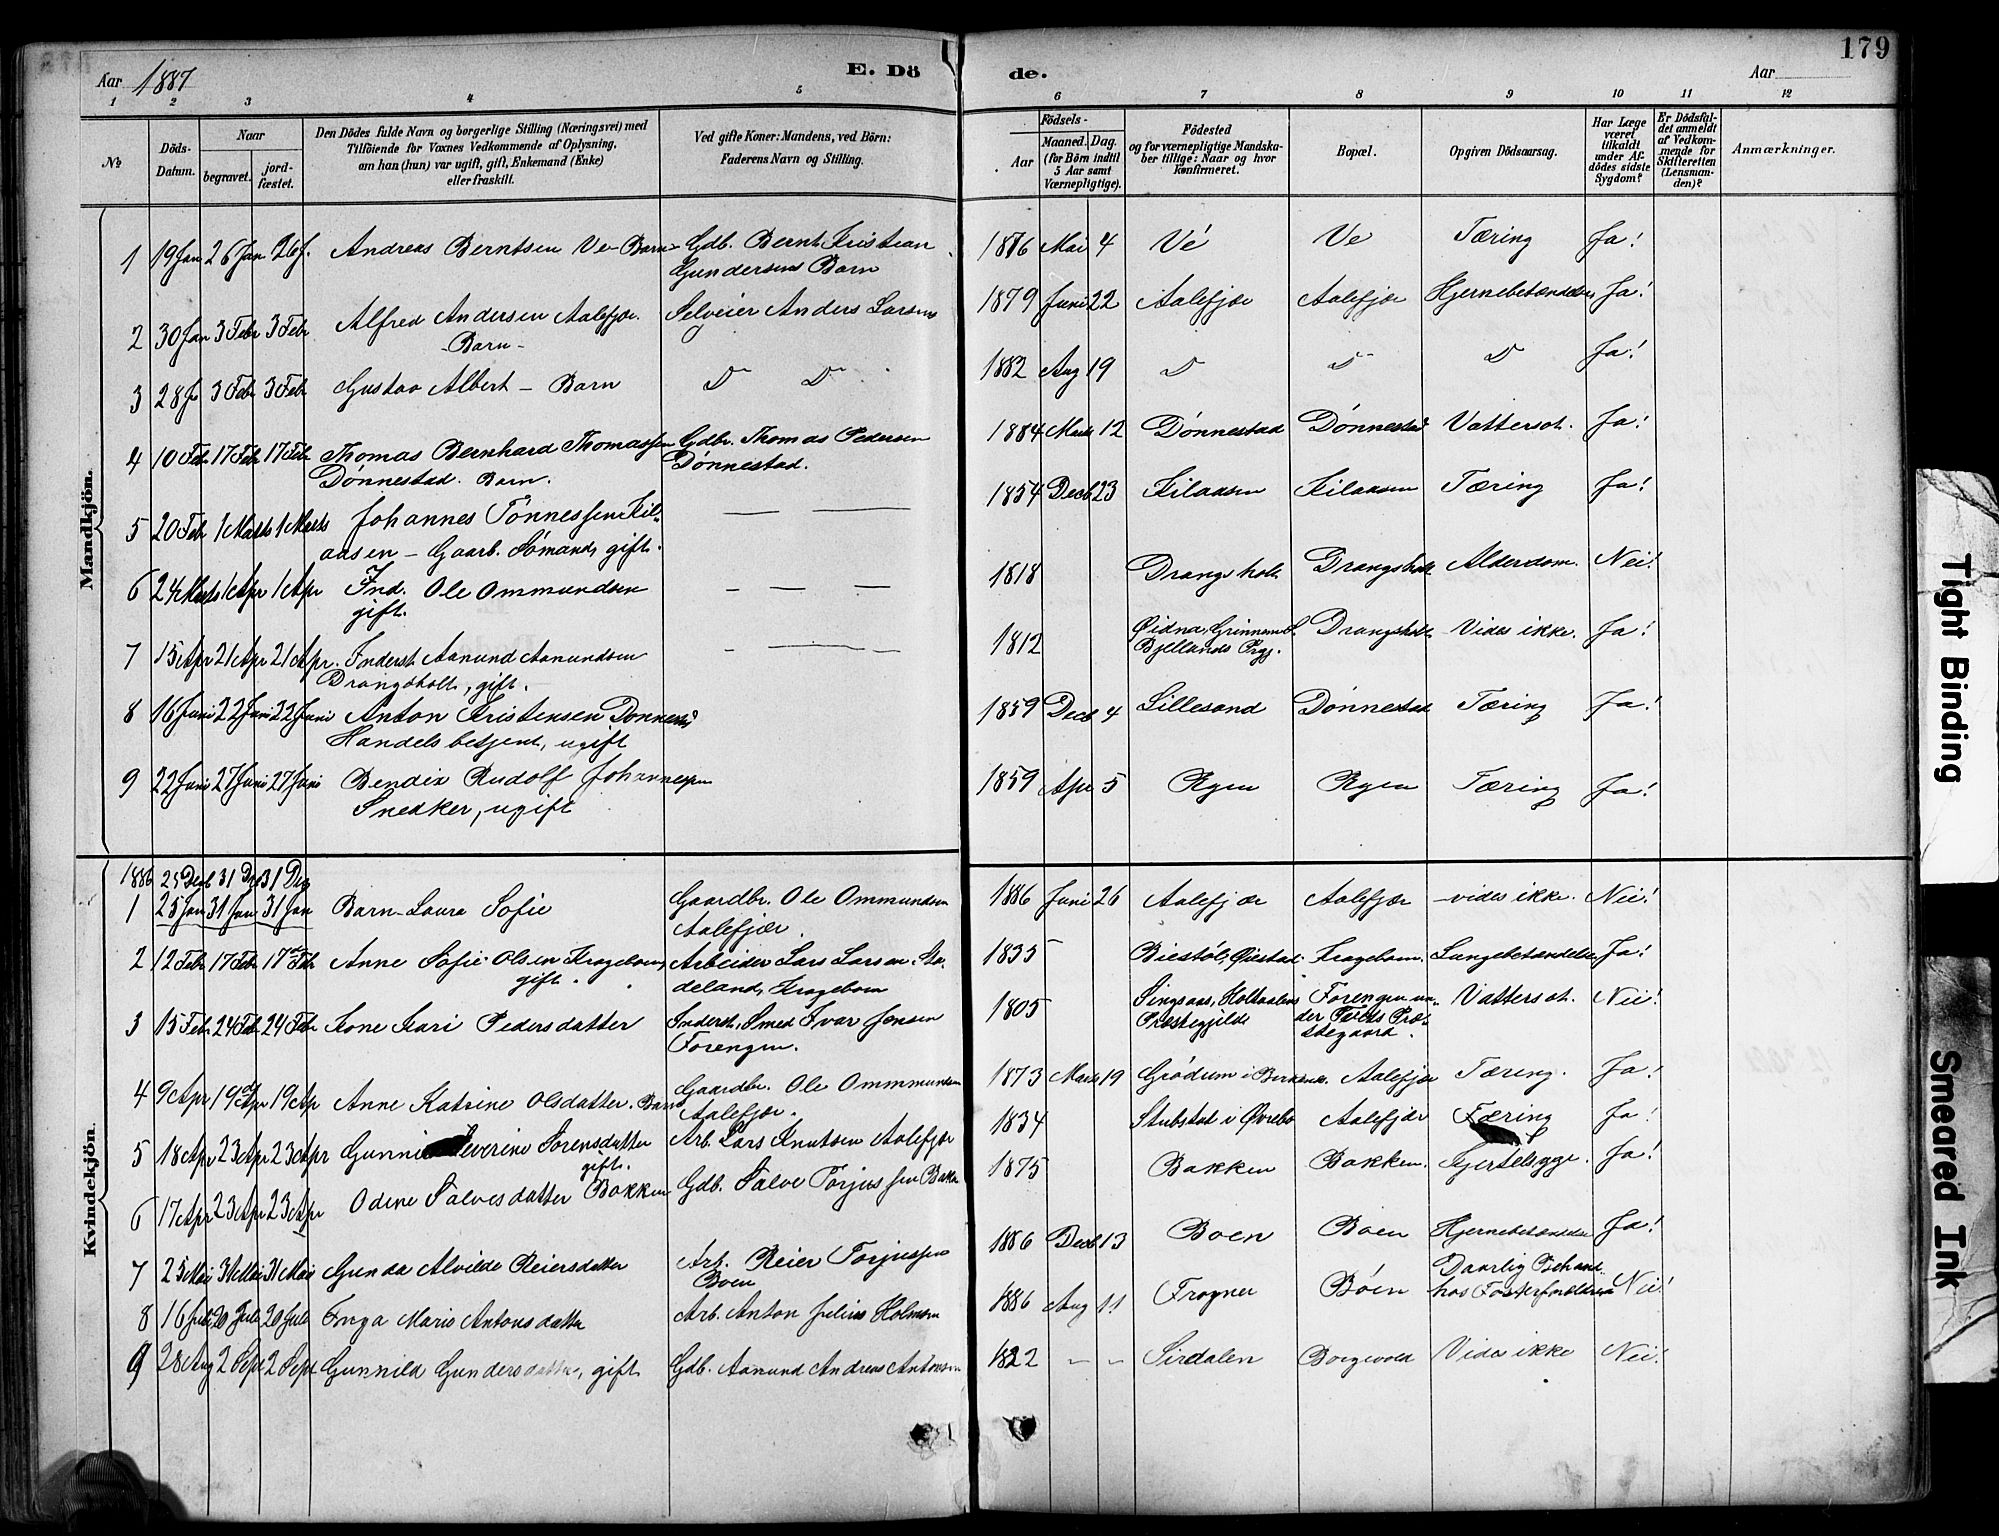 179
Aar 1887
E. Dö
de.
Aar
1 2 3 4 5 6 7 8 9 10 11 12
№
Döds-Datum.
Naar
begravet.
jord-fæstet.
Den Dödes fulde Navn og borgerlige Stilling (Næringsvei) med
Tilföiende for Voxnes Vedkommende af Oplysning,
om han (hun) var ugift, gift, Enkemand (Enke)
eller fraskilt.
Ved gifte Koner: Mandens, ved Börn:
Faderens Navn og Stilling.
Födsels-
Aar
Maaned. Dag.
(for Börn indtil
5 Aar samt
Værnepligtige).
Födested
og for værnepligtige Mandska-
ber tillige: Naar og hvor
konfirmeret.
Bopæl.
Opgiven Dödsaarsag.
Har Læge
været
tilkaldt
under Af-
dödes sidste
Sygdom?
Er Dödsfal-
det anmeldt
af Vedkom-
mende for
Skifteretten
(Lensman-
den)?
Anmærkninger.
Mandkjön.
1 19 Jan 26 Jan 26 J. Andreas Berntsen Ve - Barn - Gdb. Bernt Kristian 1876 Mai 4 Vé Ve Tæring Ja!
Gundersens Barn
2 30 Jan 3 Febr 3 Febr Alfred Andersen Aalefjær. Selveier Anders Larsens 1879 Juni 22 Aalefjær Aalefjær Hjernebetændelse Ja!
- Barn -
3 28 Ja 3 Febr 3 Febr Gustav Albert - Barn D D 1882 Aug 19 D D D Ja!
4 10 Feb 17 Febr 17 Febr Thomas Bernhard Thomassen Gdbr. Thomas Pedersen 1884 Marts 12 Dønnestad Dønnestad Vattersot. Ja!
Dønnestad. Barn. Dønnestad.
5 20 Febr 1 Marts 1 Marts Johannes Tønnessen Kil- 1854 Decb 23 Kilaasen Kilaasen Tæring Ja!
aasen - Gaarb. Sømand, gift.
6 24 Marts 1 Apr 1 Apr Ind. Ole Ommundsen - - - 1818 Drangsholt Drangsholt Alderdom. Nei!
gift.
7 15 Apr 21 Apr 21 Apr. Inderst Aanund Aanundsen 1812 Øidna, Grinnem S. Drangsholt Vides ikke. Ja!
Drangsholt, gift. Bjellands Prgj.
8 16 Juni 22 Juni 22 Juni Anton Kristensen Dønnestad 1859 Decb 4 Lillesand Dønnestad Tæring Ja!
Handelsbetjent, ugift
9 22 Juni 27 Juni 27 Juni Bendix Rudolf Johannessen 1859 Apr 5 Ryen Ryen Tæring Ja!
Snedker, ugift
Kvindekjön.
1886 25 Decb 31 Dec 31 Dec
1 25 Jan 31 Jan 31 Jan Barn - Laura Sofie Gaardbr. Ole Ommundsen 1886 Juni 26 Aalefjær Aalefjær - vides ikke. Nei!
Aalefjær.
2 12 Febr 17 Febr 17 Febr Anne Sofie Olsen Krageboen, Arbeider Lars Larsen Sta- 1835 Biestøl, Øiestad. Krageboen. Lungebetændelse Ja!
gift. deland, Krageboen
3 15 Febr 24 Feb 24 Febr Kone Kari Pedersdatter Inderst, Smed Ivar Jensen 1805 Singsaas, Holtaalens Forengen un- Vattersot. Nei!
Forengen. Præstegjeld der Tveits Præ-
stegaard.
4 9 Apr 19 Apr 19 Apr Anne Katrine Olsdatter. Barn Gaardbr. Ole Ommundsen 1873 Marts 19 Grødum i Birkenes. Aalefjær Tæring. Ja!
Aalefjær.
5 18 Apr 23 Apr 23 Apr Gunnil Severine Sørensdatter Arb. Lars Knutsen Aalefjær 1834 Stubstad i Øvrebø Aalefjær Tæring Ja!
gift.
6 17 Apr 23 Apr 23 Apr Odine Salvesdatter Bakken Gdb. Salve Torjussen Bakken 1875 Bakken Bakken. Kjertelsyge. Ja!
7 25 Mai 31 Mai 31 Mai Gunda Alvilde Reiersdatter Arb. Reier Torjussen 1886 Decb 13 Boen Boen Hjernebetændelse Ja!
Boen
8 16 Juli 20 Juli 20 Juli Inga Marie Antonsdatter Arb. Anton Julius Holmsen 1886 Aug 11 Frogner Bøen Daarlig Behand. Nei!
hos Fosterforældrene
9 28 Aug 2 Sept 2 Sept Gunnild Gundersdatter, gift Gdb. Aanund Andreas Antonsen 1822 - - Sirdalen Borgevold Vides ikke Nei!
Tight Binding
Smeared Ink